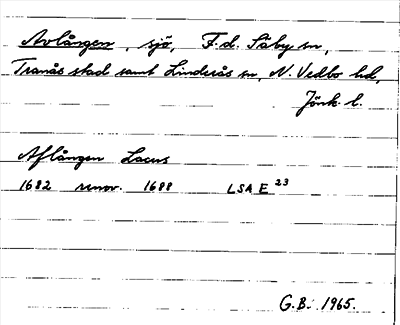 Avlången, sjö, F.d. Säby sn,
Tranås stad samt Linderås sn, N. Vedbo hd,
Jönk. l.
Aflången Lacus
1682 renov. 1688 LSA E 23
G.B. 1965.